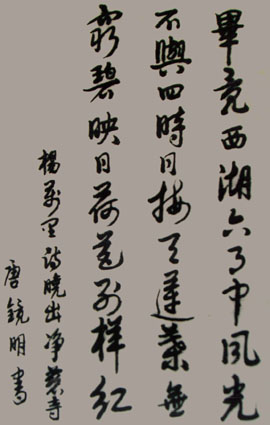 畢竟西湖六月中風光
不與四時同接天蓮葉無
窮碧映日荷花別樣紅
楊萬里詩曉出净慈寺
唐鏡明書